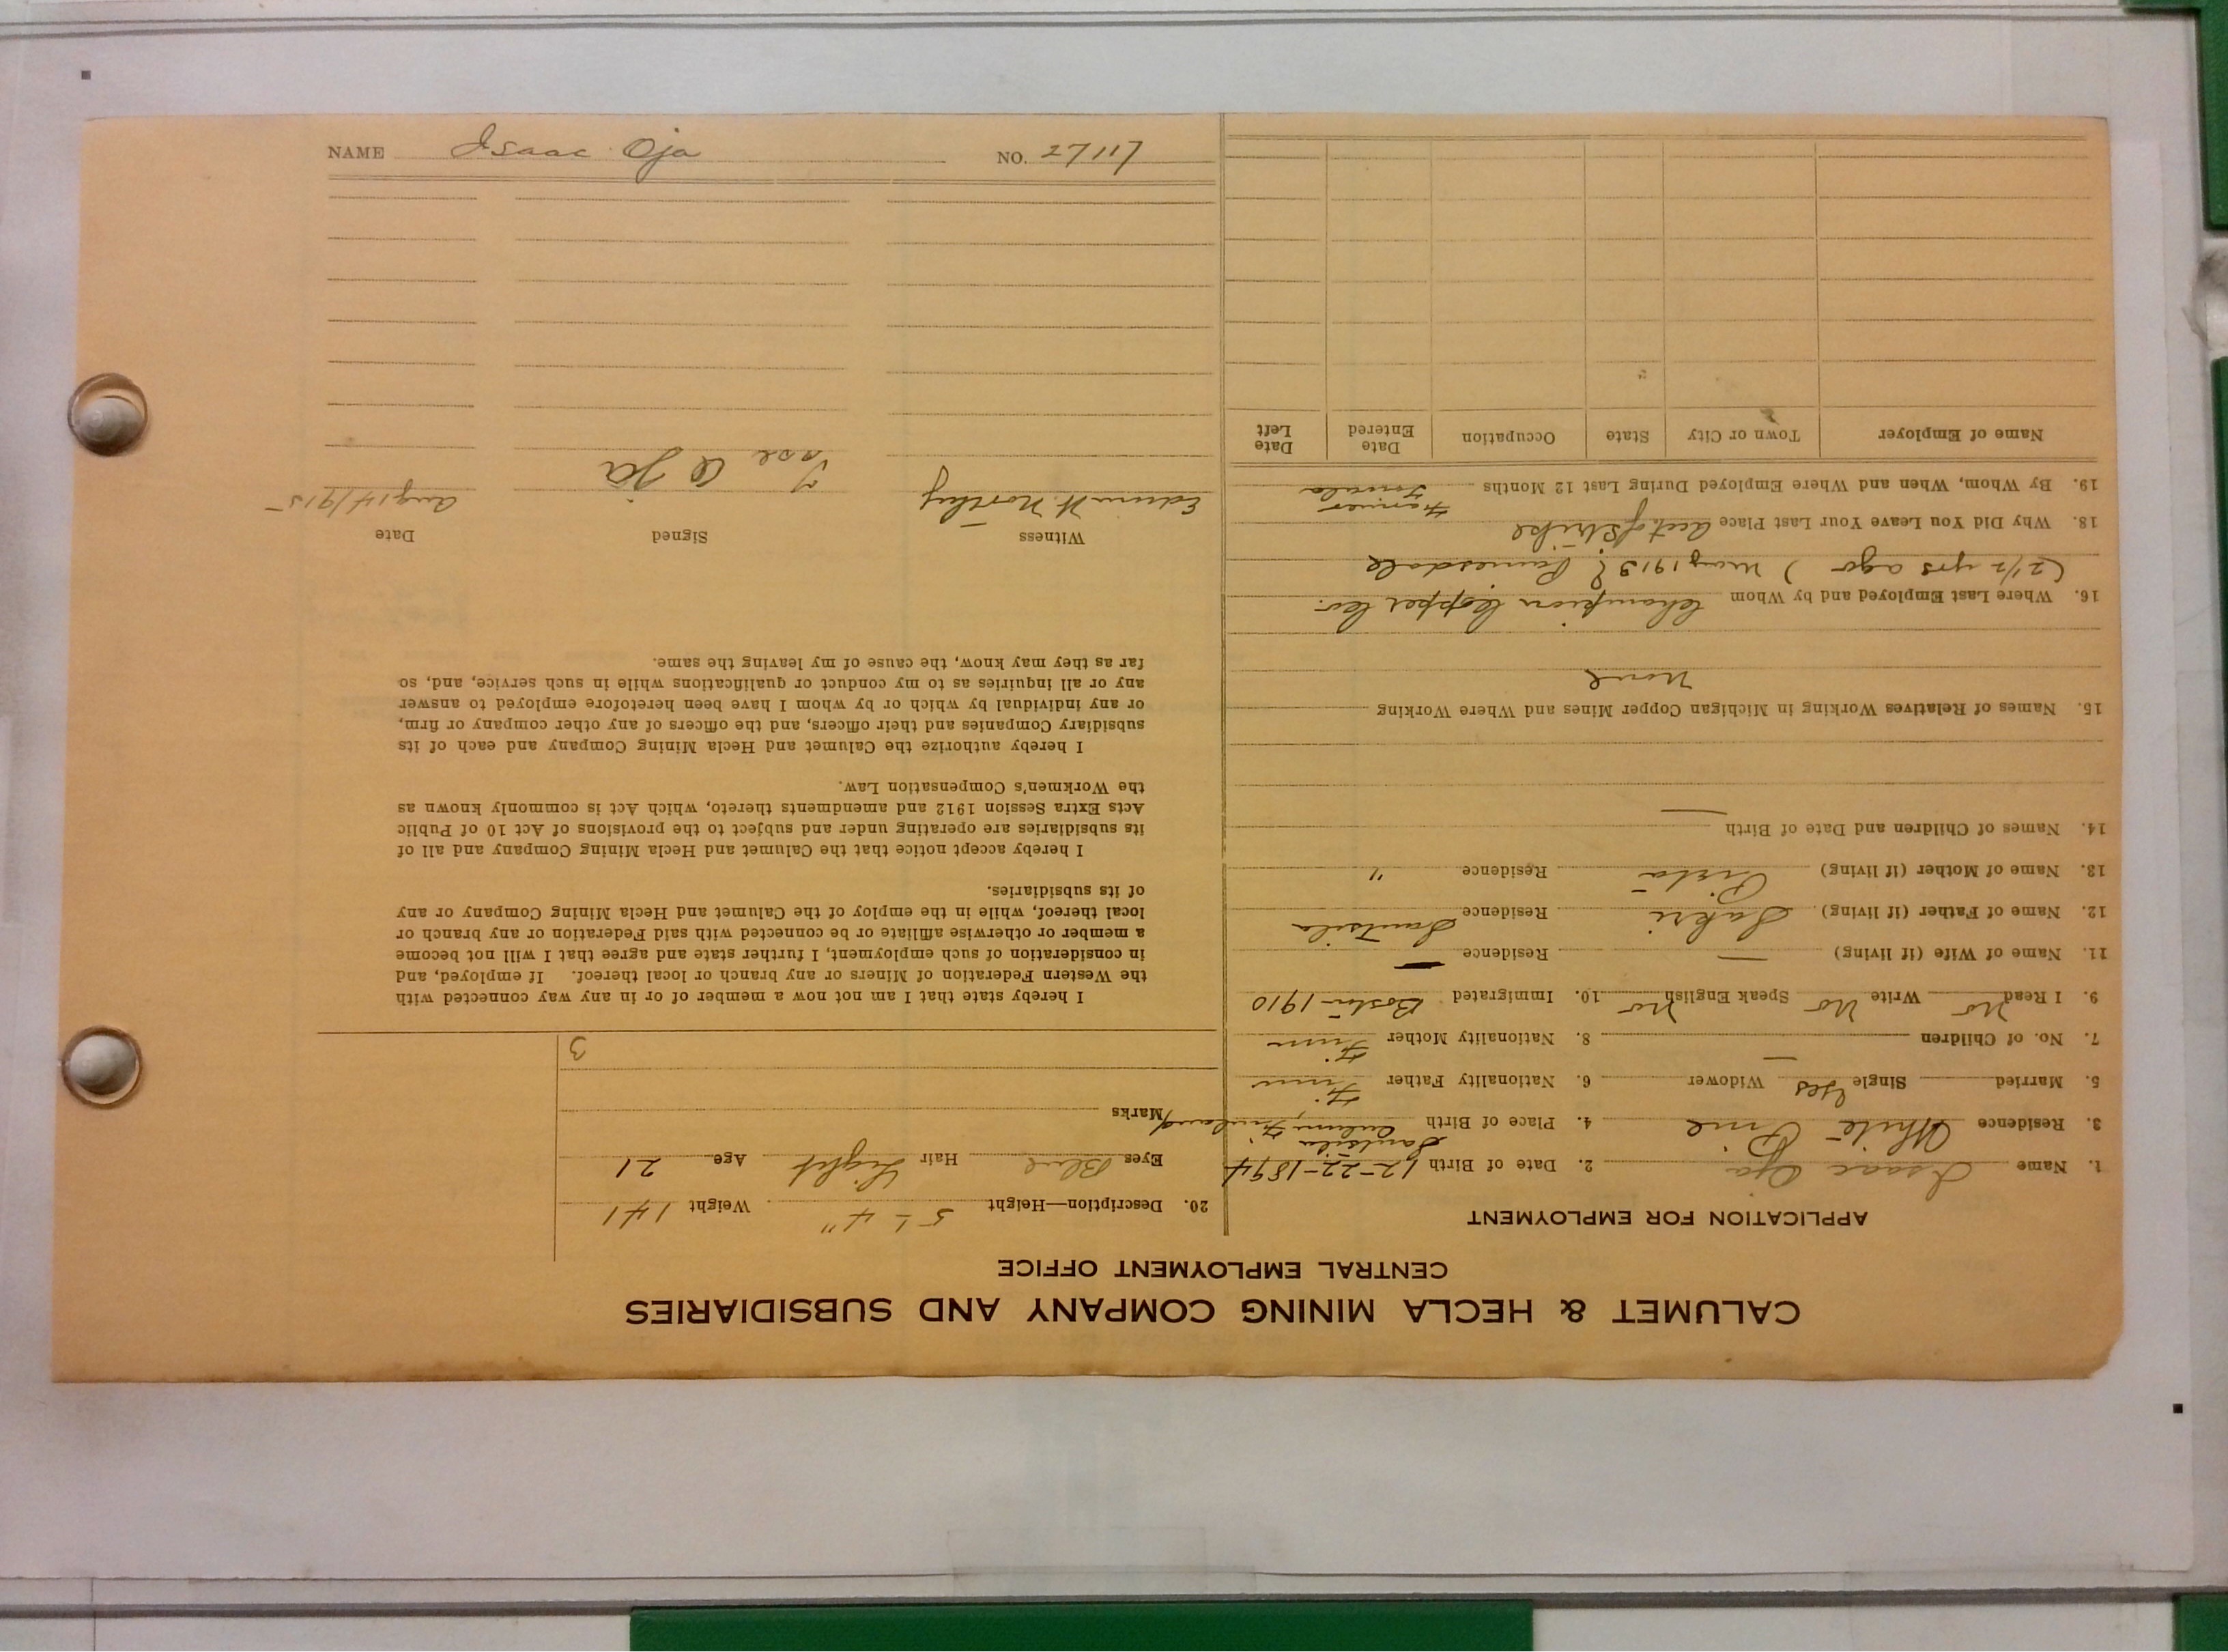 CALUMET & HECLA MINING COMPANY AND SUBSIDIARIES
CENTRAL EMPLOYMENT OFFICE
APPLICATION FOR EMPLOYMENT
1. Name Isaac Oja 2. Date of Birth 12-22-1894
3. Residence White Pine 4. Place of Birth Finland
5. Married Single Yes Widower — 6. Nationality Father Finn
7. No. of Children 8. Nationality Mother Finn
9. I Read No Write No Speak English No 10. Immigrated Boston-1910
11. Name of Wife (if living) — Residence —
12. Name of Father (if living) Sakri Residence
13. Name of Mother (if living) Residence "
14. Names of Children and Date of Birth —
15. Names of Relatives Working in Michigan Copper Mines and Where Working
None
16. Where Last Employed and by Whom Champion Copper Co.
(2 1/2 yrs ago) May 1913 Painesdale
18. Why Did You Leave Your Last Place acct of Strike
19. By Whom, When and Where Employed During Last 12 Months Farmer
Name of Employer Town or City State Occupation Date Entered Date Left
20. Description—Height 5 - 4" Weight 141
Eyes Blue Hair Light Age 21
Marks
3
I hereby state that I am not now a member of or in any way connected with
the Western Federation of Miners or any branch or local thereof. If employed, and
in consideration of such employment, I further state and agree that I will not become
a member or otherwise affiliate or be connected with said Federation or any branch or
local thereof, while in the employ of the Calumet and Hecla Mining Company or any
of its subsidiaries.
I hereby accept notice that the Calumet and Hecla Mining Company and all of
its subsidiaries are operating under and subject to the provisions of Act 10 of Public
Acts Extra Session 1912 and amendments thereto, which Act is commonly known as
the Workmen's Compensation Law.
I hereby authorize the Calumet and Hecla Mining Company and each of its
subsidiary Companies and their officers, and the officers of any other company or firm,
or any individual by which or by whom I have been heretofore employed to answer
any or all inquiries as to my conduct or qualifications while in such service, and, so
far as they may know, the cause of my leaving the same.
Witness Signed Date
Edwin H. Northey Oja Aug 14/915
NAME Isaac Oja NO. 27117